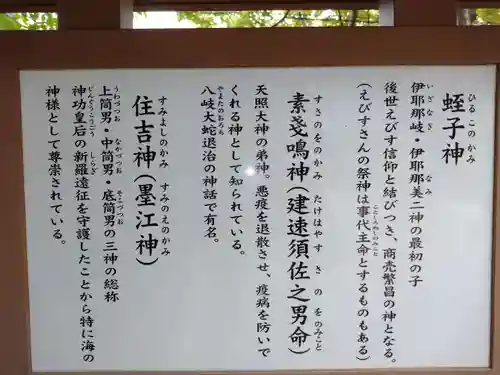 蛭子神
ひるこのかみ
伊耶那岐・伊耶那美二神の最初の子
いざなぎ なみ
後世えびす信仰と結びつき、商売繁昌の神となる。
(えびすさんの祭神は事代主命とするものもある)
ことしろぬしのみこと
素戔鳴神(建速須佐之男命)
すさのをのかみ たけはやすさのをのみこと
天照大神の弟神。悪疫を退散させ、疫病を防いで
くれる神として知られている。
八岐大蛇退治の神話で有名。
やまたのおろち
住吉神(墨江神)
すみよしのかみ すみのえのかみ
上筒男・中筒男・底筒男の三神の総称
うわづつお なかづつお そこづつお
神功皇后の新羅遠征を守護したことから特に海の
じんぐうこうごう しらぎ
神様として尊崇されている。